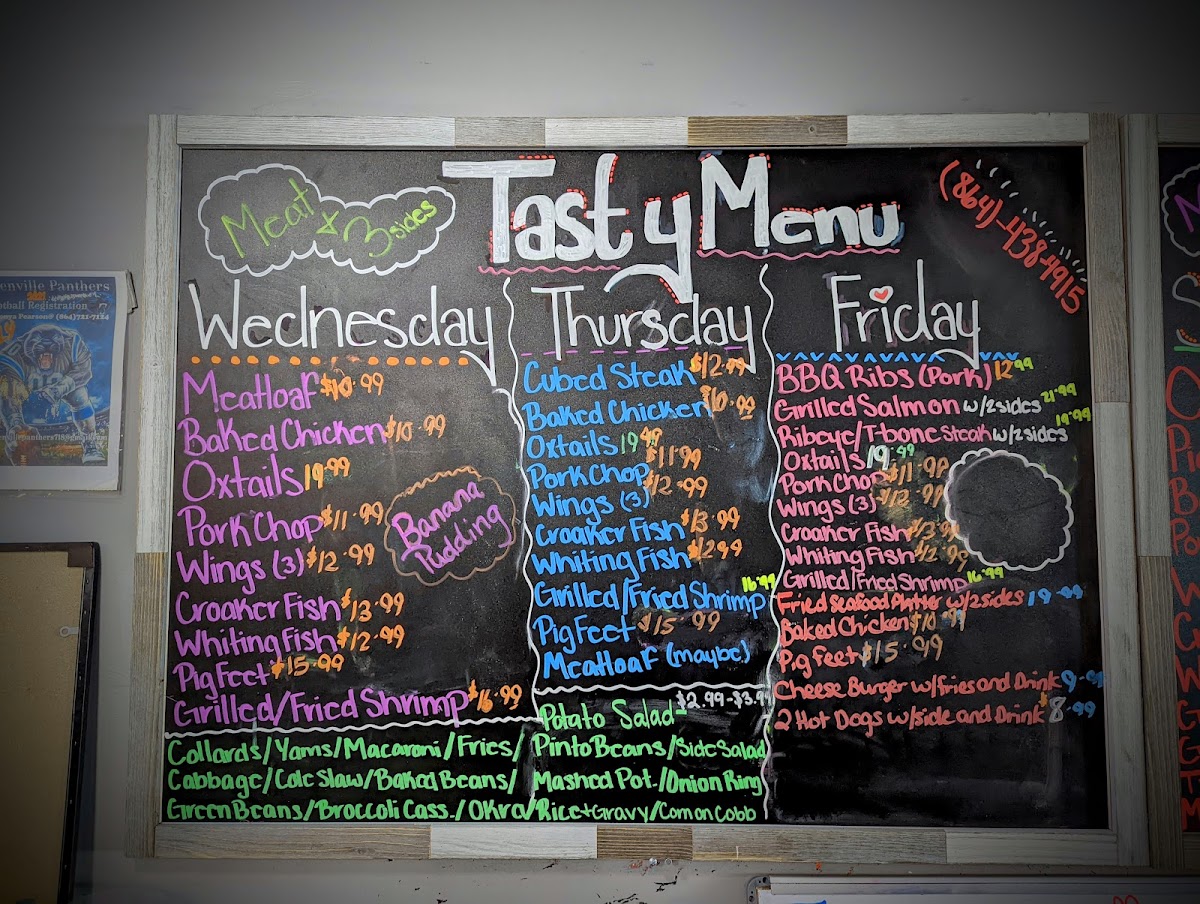 Tasty Menu
Meat & 3 sides
(864)-438-4915
Wednesday
Meatloaf $10.99
Baked Chicken $10.99
Oxtails 19.99
Pork Chop $11.99
Wings (3) $12.99
Croaker Fish $13.99
Whiting Fish $12.99
Pig Feet $15.99
Grilled/Fried Shrimp $16.99
Banana
Pudding
Thursday
Cubed Steak $12.99
Baked Chicken $10.99
Oxtails 19.99
Pork Chop $11.99
Wings (3) $12.99
Croaker Fish $13.99
Whiting Fish $12.99
Grilled/Fried Shrimp 16.99
Pig Feet $15.99
Meatloaf (maybe)
Friday
BBQ Ribs (Pork) 12.99
Grilled Salmon w/2sides 21.99
Ribeye/T-bone Steak w/2sides 19.99
Oxtails 19.99
Pork Chop $11.99
Wings (3) $12.99
Croaker Fish $13.99
Whiting Fish $12.99
Grilled/Fried Shrimp 16.99
Fried Seafood Platter w/2sides 19.99
Baked Chicken $10.99
Pig feet $15.99
Cheese Burger w/fries and Drink 9.99
2 Hot Dogs w/side and Drink $8.99
Potato Salad- $2.99-$3.99
Collards/Yams/Macaroni/Fries/ Pinto Beans/Side Salad
Cabbage/Cole Slaw/Baked Beans/ Mashed Pot./Onion Ring
Green Beans/Broccoli Cass./Okra/Rice+Gravy/Corn on Cobb
enville Panthers
otball Registration
Pearson@ (864)721-7124